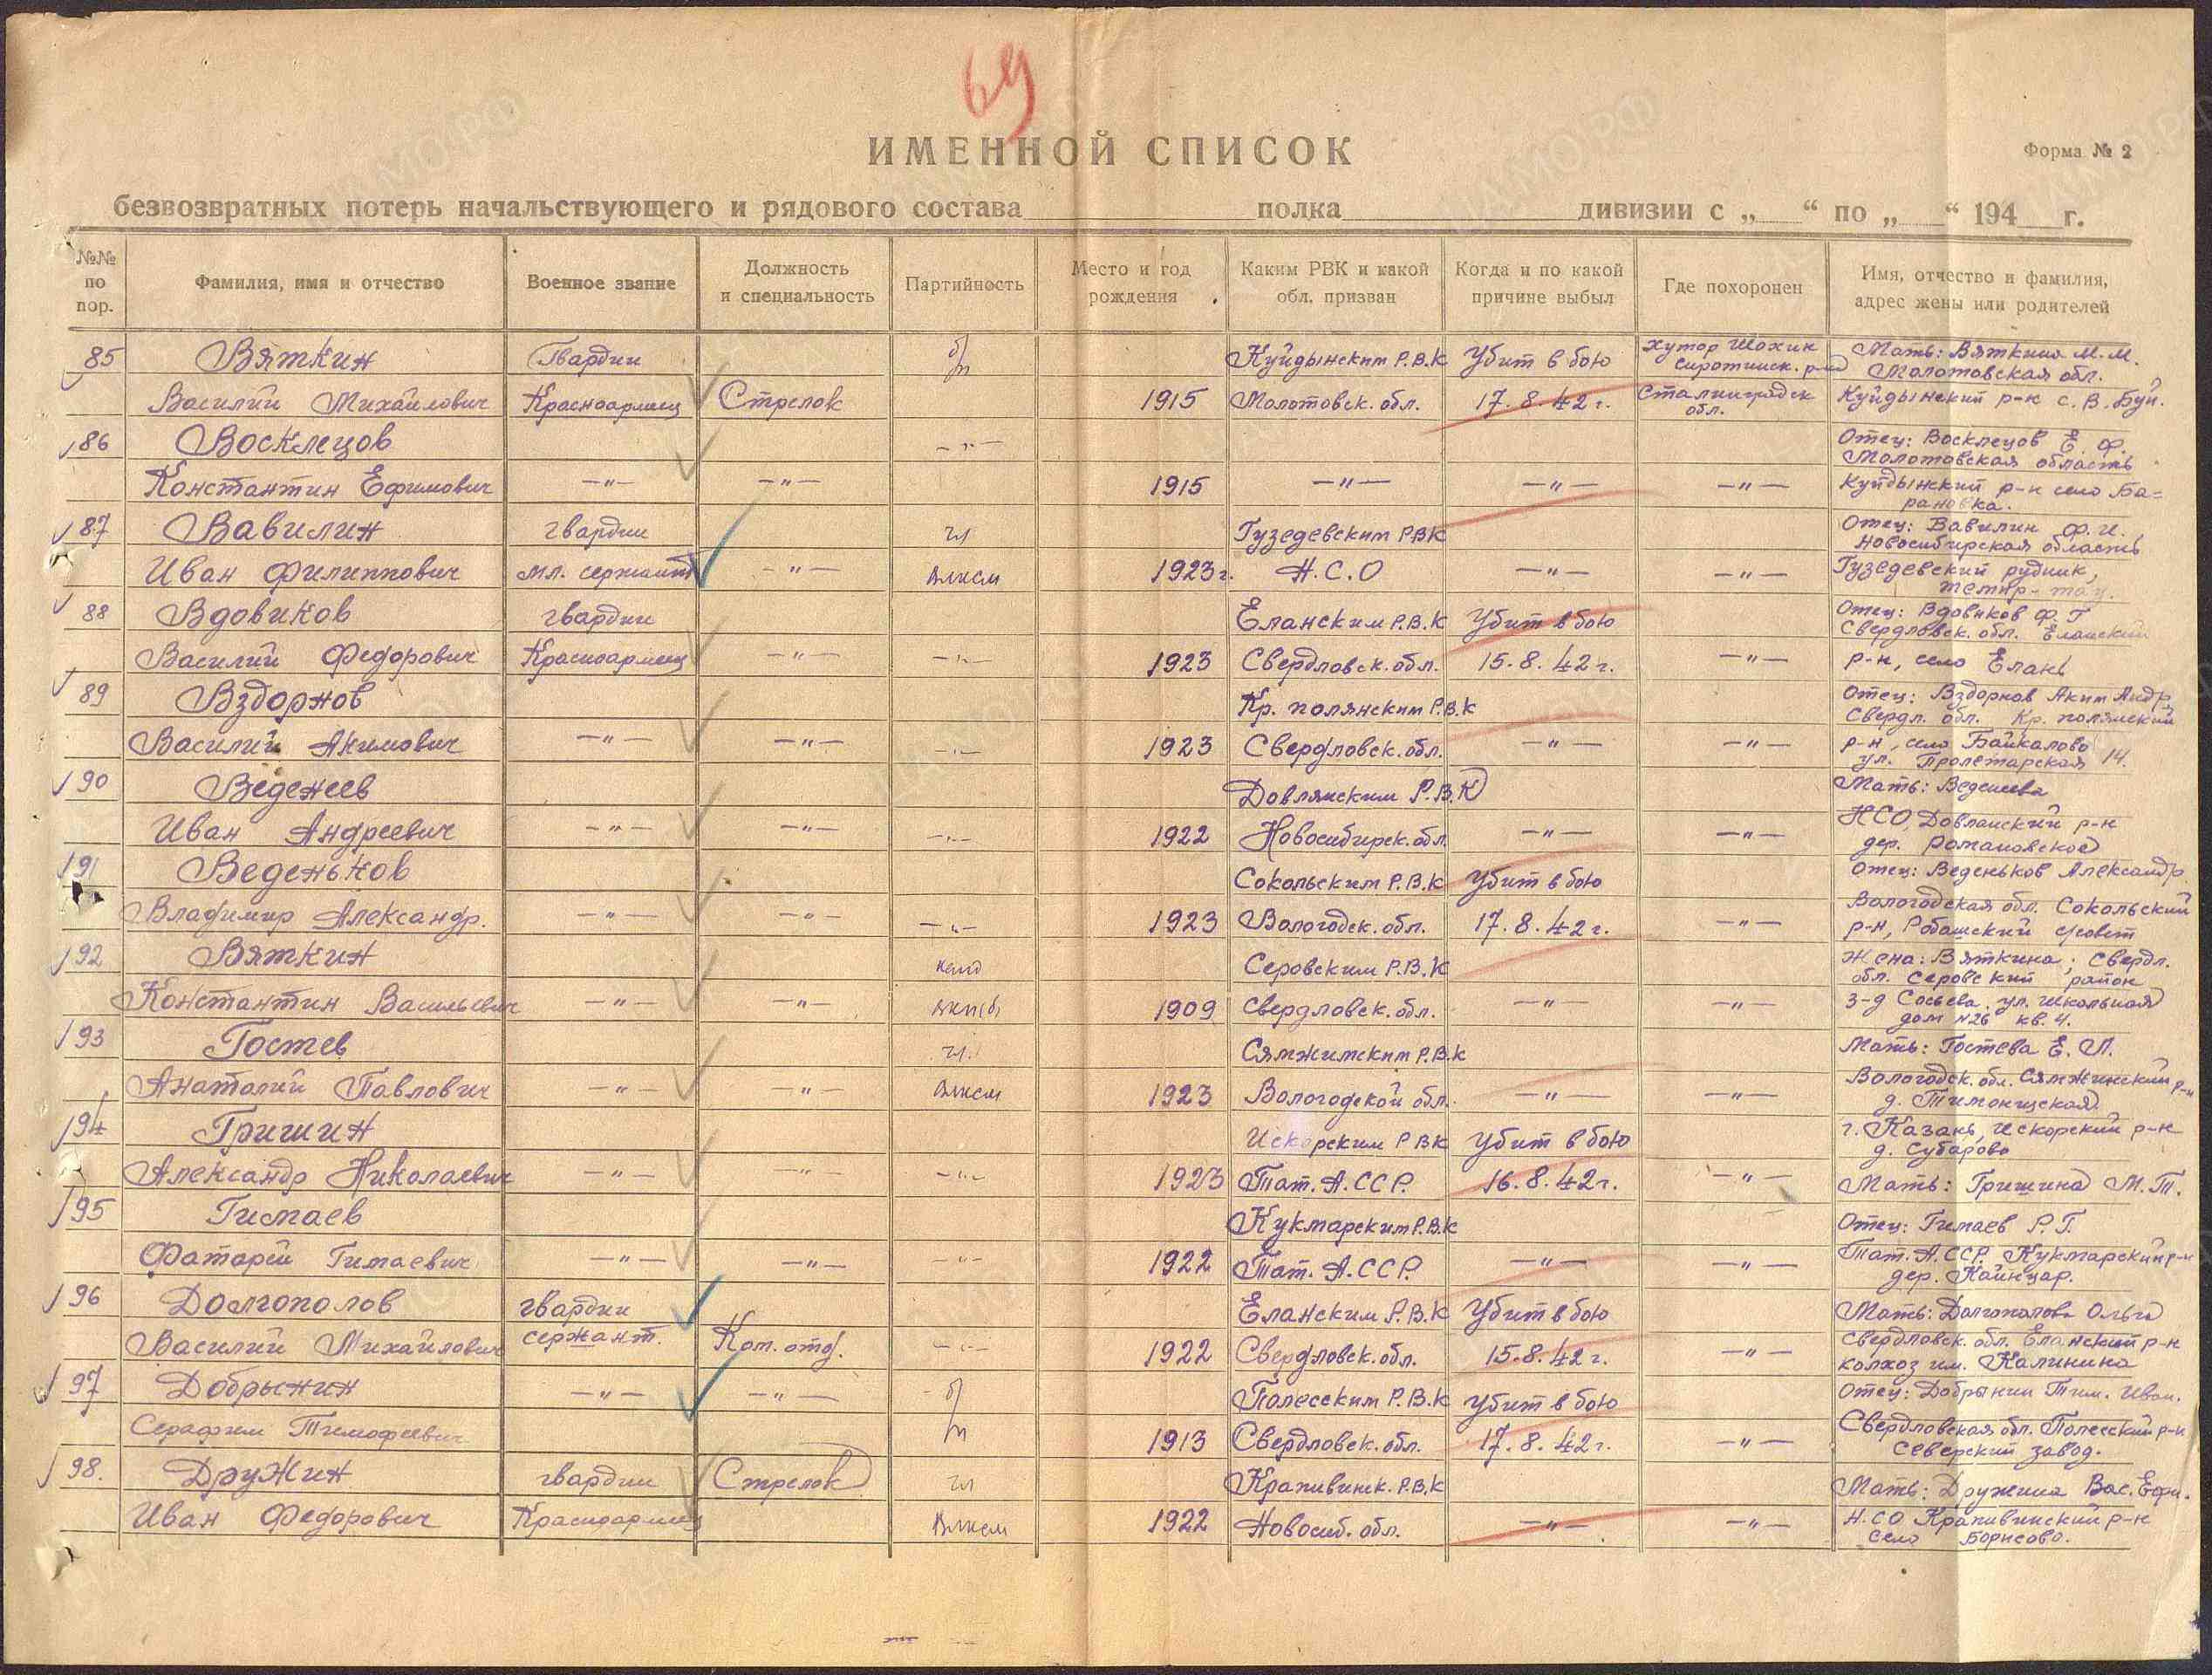 69
ИМЕННОЙ СПИСОК
Форма № 2
безвозвратных потерь начальствующего и рядового состава полка дивизии с „ “ по „ “ 194 г.
№№ по пор.
Фамилия, имя и отчество
Военное звание
Должность и специальность
Партийность
Место и год рождения
Каким РВК и какой обл. призван
Когда и по какой причине выбыл
Где похоронен
Имя, отчество и фамилия, адрес жены или родителей
85 Вяткин Гвардии б/п Куйдынским Р.В.К Убит в бою хутор Шохин Сиротинск. р-на Мать: Вяткина М.М. Молотовская обл.
Василий Михайлович Красноармеец Стрелок 1915 Молотовск. обл. 17.8.42 г. Сталинградск обл. Куйдынский р-н с. В. Буй.
86 Восклецов -"- Отец: Восклецов Е. Ф. Молотовская область
Константин Ефимович -"- -"- 1915 -"- -"- -"- Куйдынский р-н село Ба=рановка.
87 Вавилин гвардии чл Гузедевским РВК Отец: Вавилин Ф.И. Новосибирская область
Иван Филиппович мл. сержант -"- ВЛКСМ 1923 г. Н.С.О -"- -"- Гузедевский рудник, Темир-тау.
88 Вдовиков гвардии Еланским Р.В.К Убит в бою Отец: Вдовиков Ф.Г Свердловск. обл. Еланский
Василий Федорович Красноармеец -"- -"- 1923 Свердловск. обл. 15.8.42 г. -"- р-н, село Елань
89 Вздорнов Кр. полянским Р.В.К Отец: Вздорнов Аким Андр. Свердл. обл. Кр. полянский
Василий Акимович -"- -"- -"- 1923 Свердловск. обл. -"- -"- р-н, село Байкалово ул. Пролетарская 14.
90 Веденеев Довлянским Р.В.К Мать: Веденеева
Иван Андреевич -"- -"- -"- 1922 Новосибирск. обл. -"- -"- НСО, Довланский р-н дер. Романовское
91 Веденьков Сокольским Р.В.К Убит в бою Отец: Веденьков Александр
Владимир Александр. -"- -"- -"- 1923 Вологодск. обл. 17.8.42 г. -"- Вологодская обл. Сокольский р-н, Робашский с/совет
92 Вяткин канд Серовским Р.В.К Жена: Вяткина; Свердл. обл. Серовский район
Константин Васильевич -"- -"- ВКП(б) 1909 Свердловск. обл. -"- -"- з-д Сосьева, ул. Школьная дом №26 кв. 4.
93 Гостев чл. Сямжимским Р.В.К Мать: Гостева Е. П.
Анатолий Павлович -"- -"- ВЛКСМ 1923 Вологодской обл. -"- -"- Вологодск. обл. Сямженский р-н д. Тимонинская
94 Гришин Искорским РВК Убит в бою г. Казань, Искорский р-н д. Субарово
Александр Николаевич -"- -"- -"- 1923 Тат. А.ССР. 16.8.42 г. -"- Мать: Гришина М.Т.
95 Гимаев Кукмарским Р.В.К Отец: Гимаев Р. Г.
Фатарей Гимаевич -"- -"- -"- 1922 Тат. А.ССР. -"- -"- Тат. А.ССР. Кукмарский р-н дер. Кайнцар.
96 Долгополов гвардии Еланским Р.В.К Убит в бою Мать: Долгополова Ольга
Василий Михайлович сержант. Ком. отд. -"- 1922 Свердловск. обл. 15.8.42 г. -"- Свердловск. обл. Еланский р-н колхоз им. Калинина
97 Добрынин -"- -"- б/п Полесским Р.В.К Убит в бою Отец: Добрынин Тим. Иван.
Серафим Тимофеевич 1913 Свердловск. обл. 17.8.42 г. -"- Свердловская обл. Полесский р-н Северский завод.
98. Дружин гвардии Стрелок чл Крапивинск. Р.В.К Мать: Дружина Вас. Ефи.
Иван Федорович Красноармеец ВЛКСМ 1922 Новосиб. обл. -"- -"- Н.СО Крапивинский р-н село Борисово.